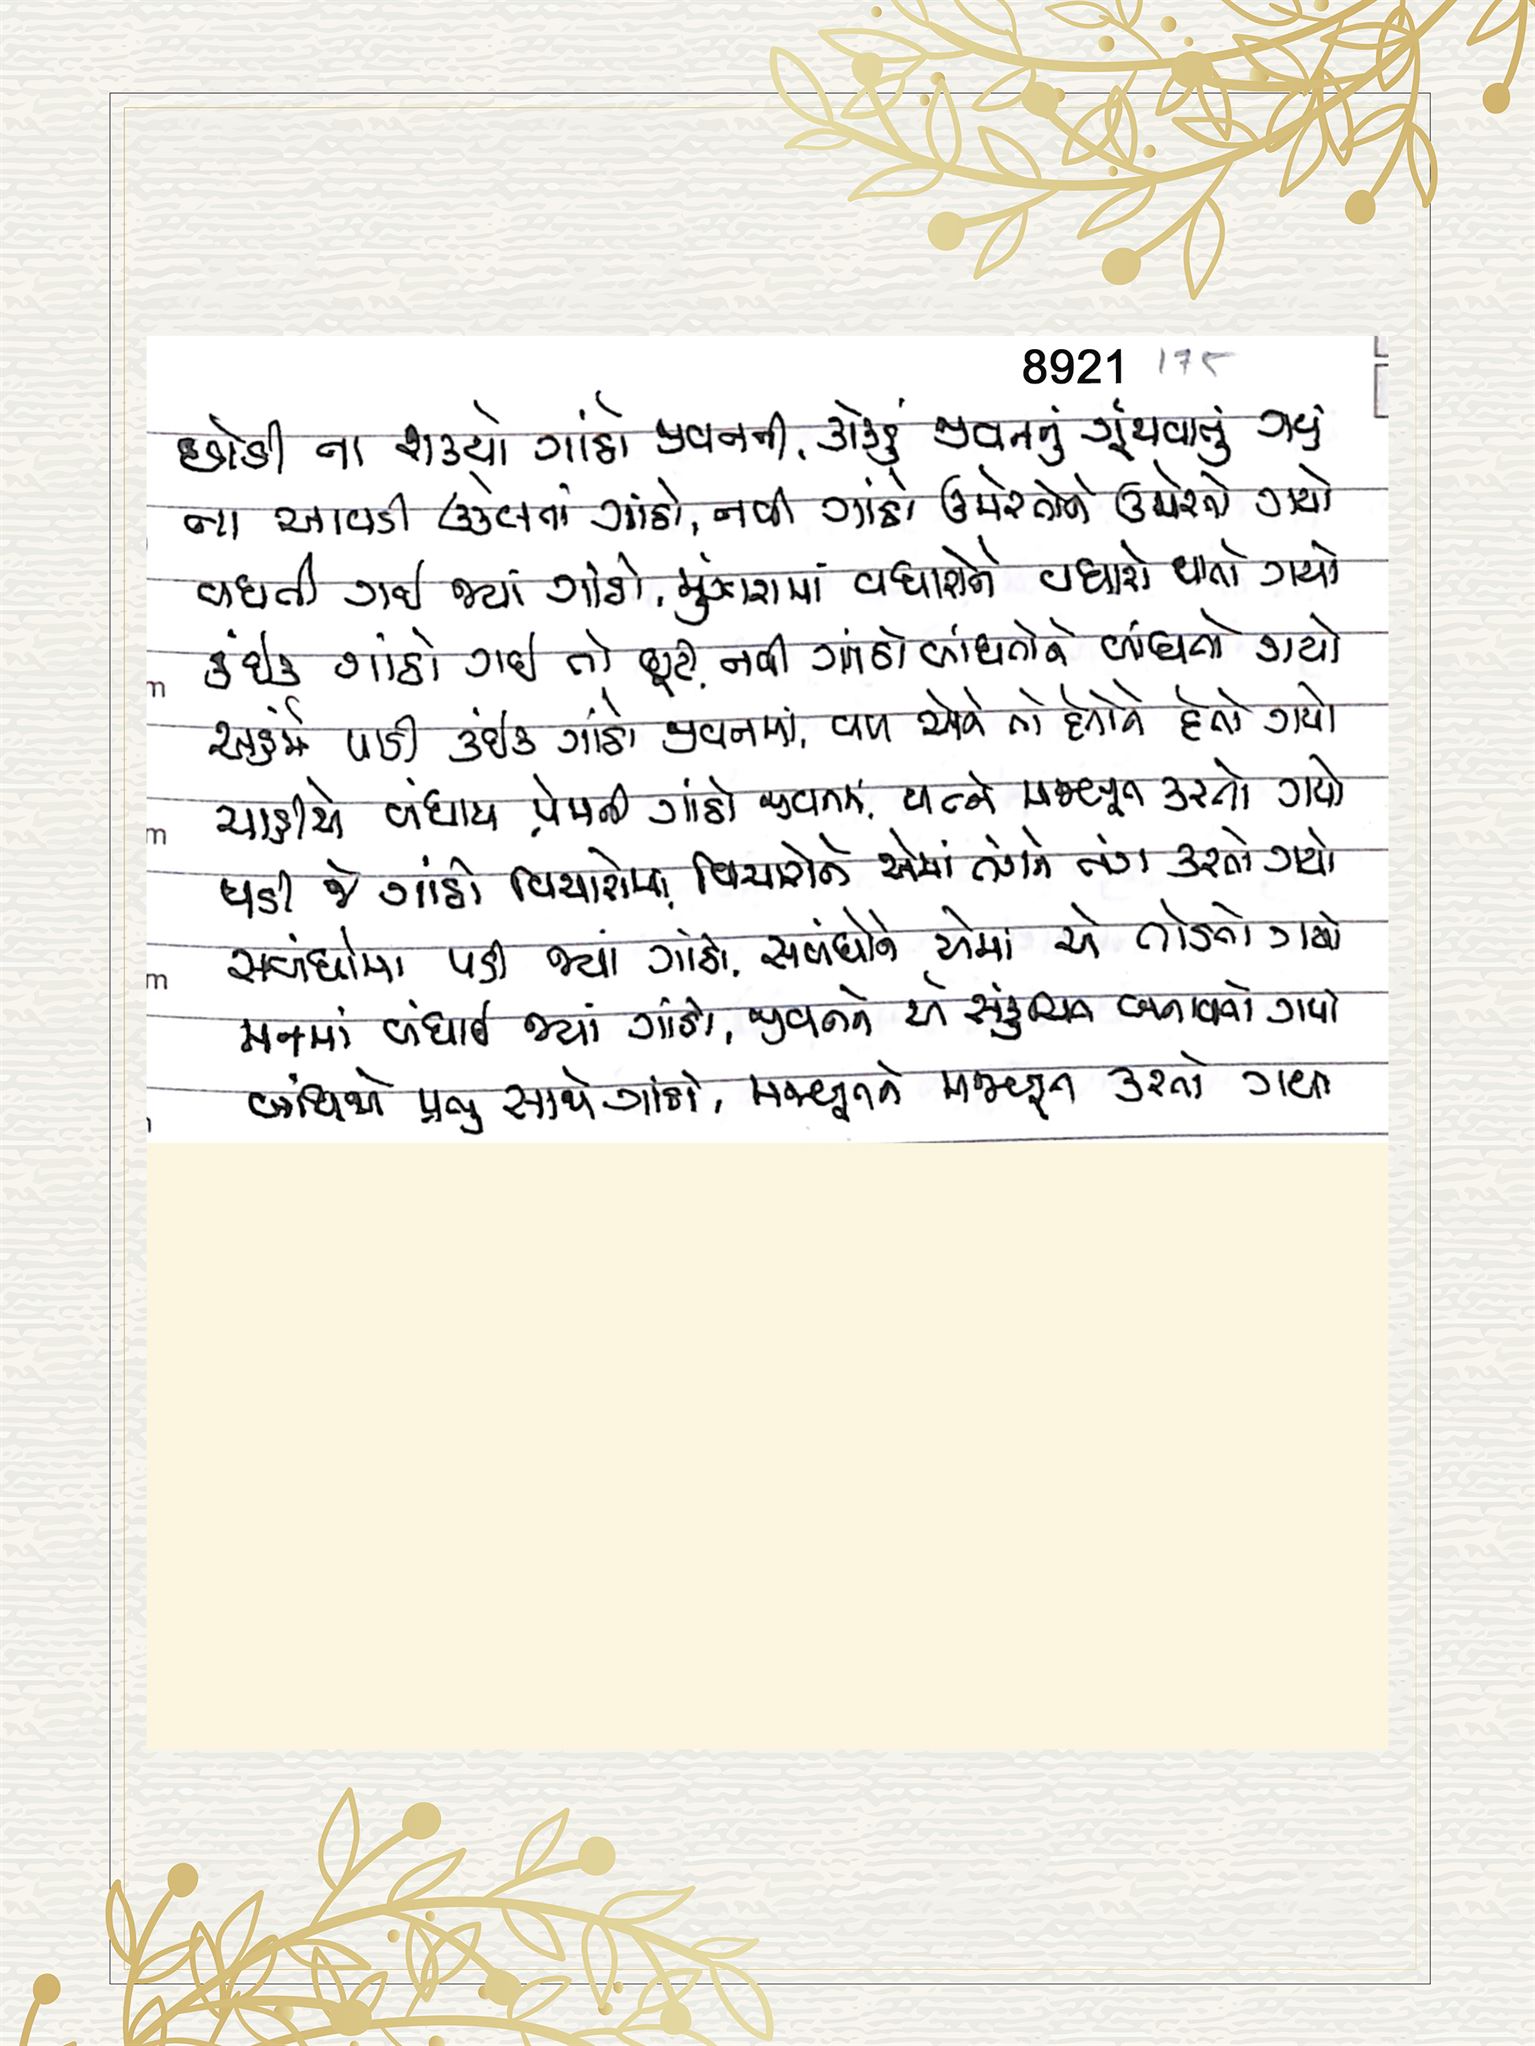 8921 175
છોડી ના શક્યો ગાંઠો જીવનની, કોકડું જીવનનું ગૂંથવાતું ગયું
ના આવડી ઉકેલતાં ગાંઠો, નવી ગાંઠો ઉમેરતોને ઉમેરતો ગયો
વધતી ગઈ જ્યાં ગાંઠો, મુંઝારામાં વધારોને વધારો થાતો ગયો
કંઈક ગાંઠો ગઈ તો છૂટી, નવી ગાંઠો બાંધતોને બાંધતો ગયો
અહંમે પાડી કંઈક ગાંઠો જીવનમાં, વળ એને તો દેતોને દેતો ગયો
ચાહીએ બંધાય પ્રેમની ગાંઠો જીવનમાં, યત્ને મજબૂત કરતો ગયો
પડી જે ગાંઠો વિચારોમાં, વિચારોને એમાં તંગને તંગ કરતો ગયો
સબંધોમાં પડી જ્યાં ગાંઠો, સબંધોને એમાં એ તોડતો ગયો
મનમાં બંધાઈ જ્યાં ગાંઠો, જીવનને એ સંકુચિત બનાવતો ગયો
બાંધીએ પ્રભુ સાથે ગાંઠો, મજબૂતને મજબૂત કરતો ગયો